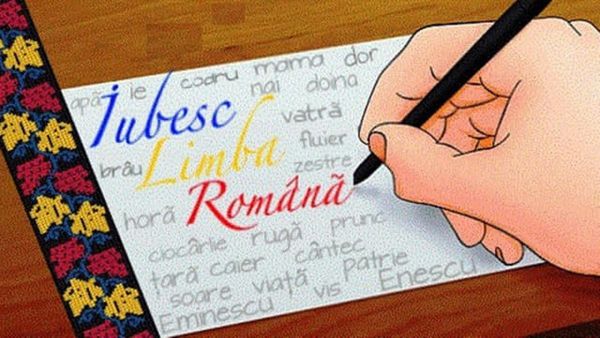 apă ie codru mama dor
nai doina
Iubesc vatră
Limba fluier
brâu zestre
Română
horă
ciocârlie rugă prunc
țară caier cântec
soare viață Patrie
Eminescu vis Enescu